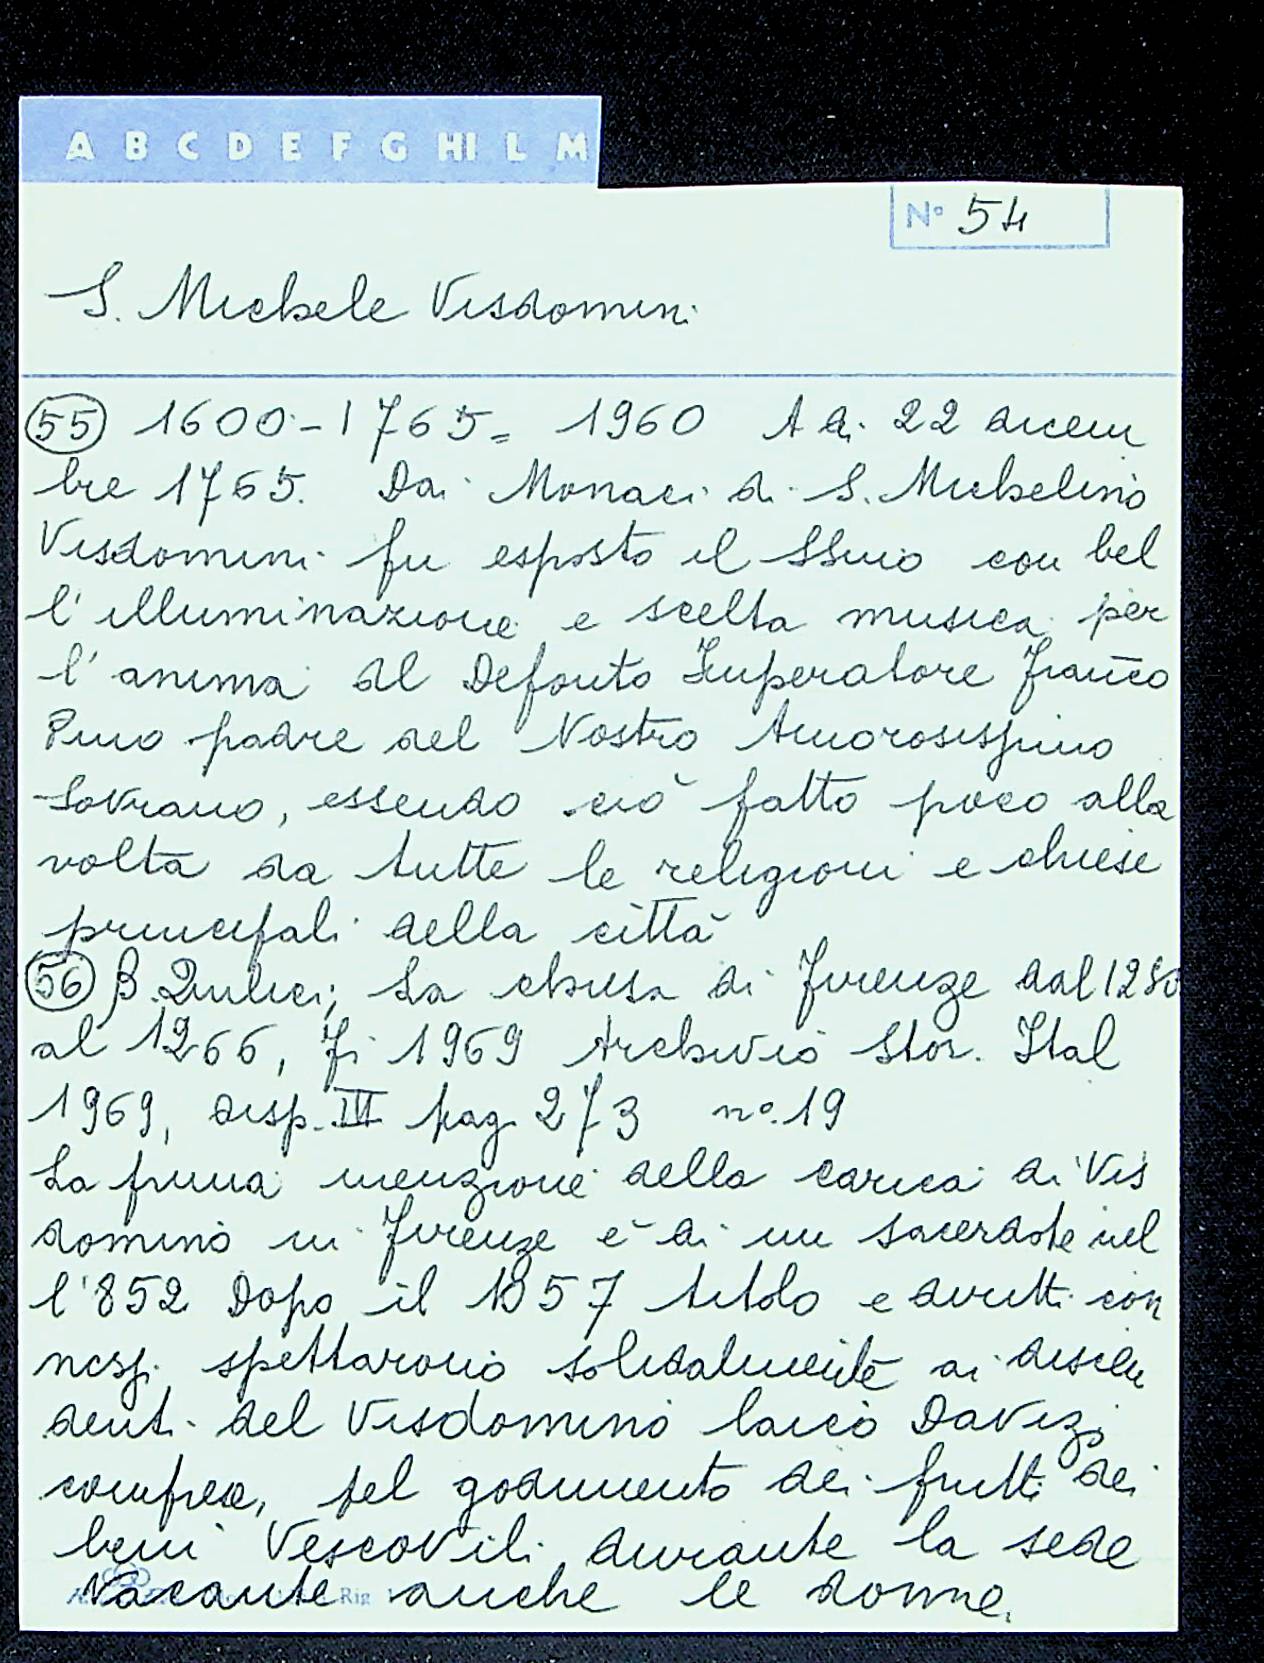 A B C D E F G HI L M
N° 54
S. Michele Visdomini
(55) 1600-1765= 1960 A dì 22 dicem
bre 1765. Dai Monaci di S. Michelino
Visdomini fu esposto il SSmo con bel
l'illuminazione e scelta musica per
l'anima del Defonto Imperatore Franco
Pmo padre del Nostro Amorosissimo
Sovrano, essendo ciò fatto poco alla
volta da tutte le religioni e chiese
principali della città
(56) B. Quilici; La chiesa di Firenze dal
al 1266, Fi 1969 Archivio Stor. Ital
1969, disp. III pag 273 n°. 19
La prima menzione della carica di Vis
domino in Firenze è di un sacerdote nel
l'852 Dopo il 1057 titolo e diritti con
nessi spettarono solidalmente ai discen
denti del Visdomino laico Davizi
comprese, pel godimento dei frutti dei
beni Vescovili durante la sede
Vacante anche le donne.
Rig